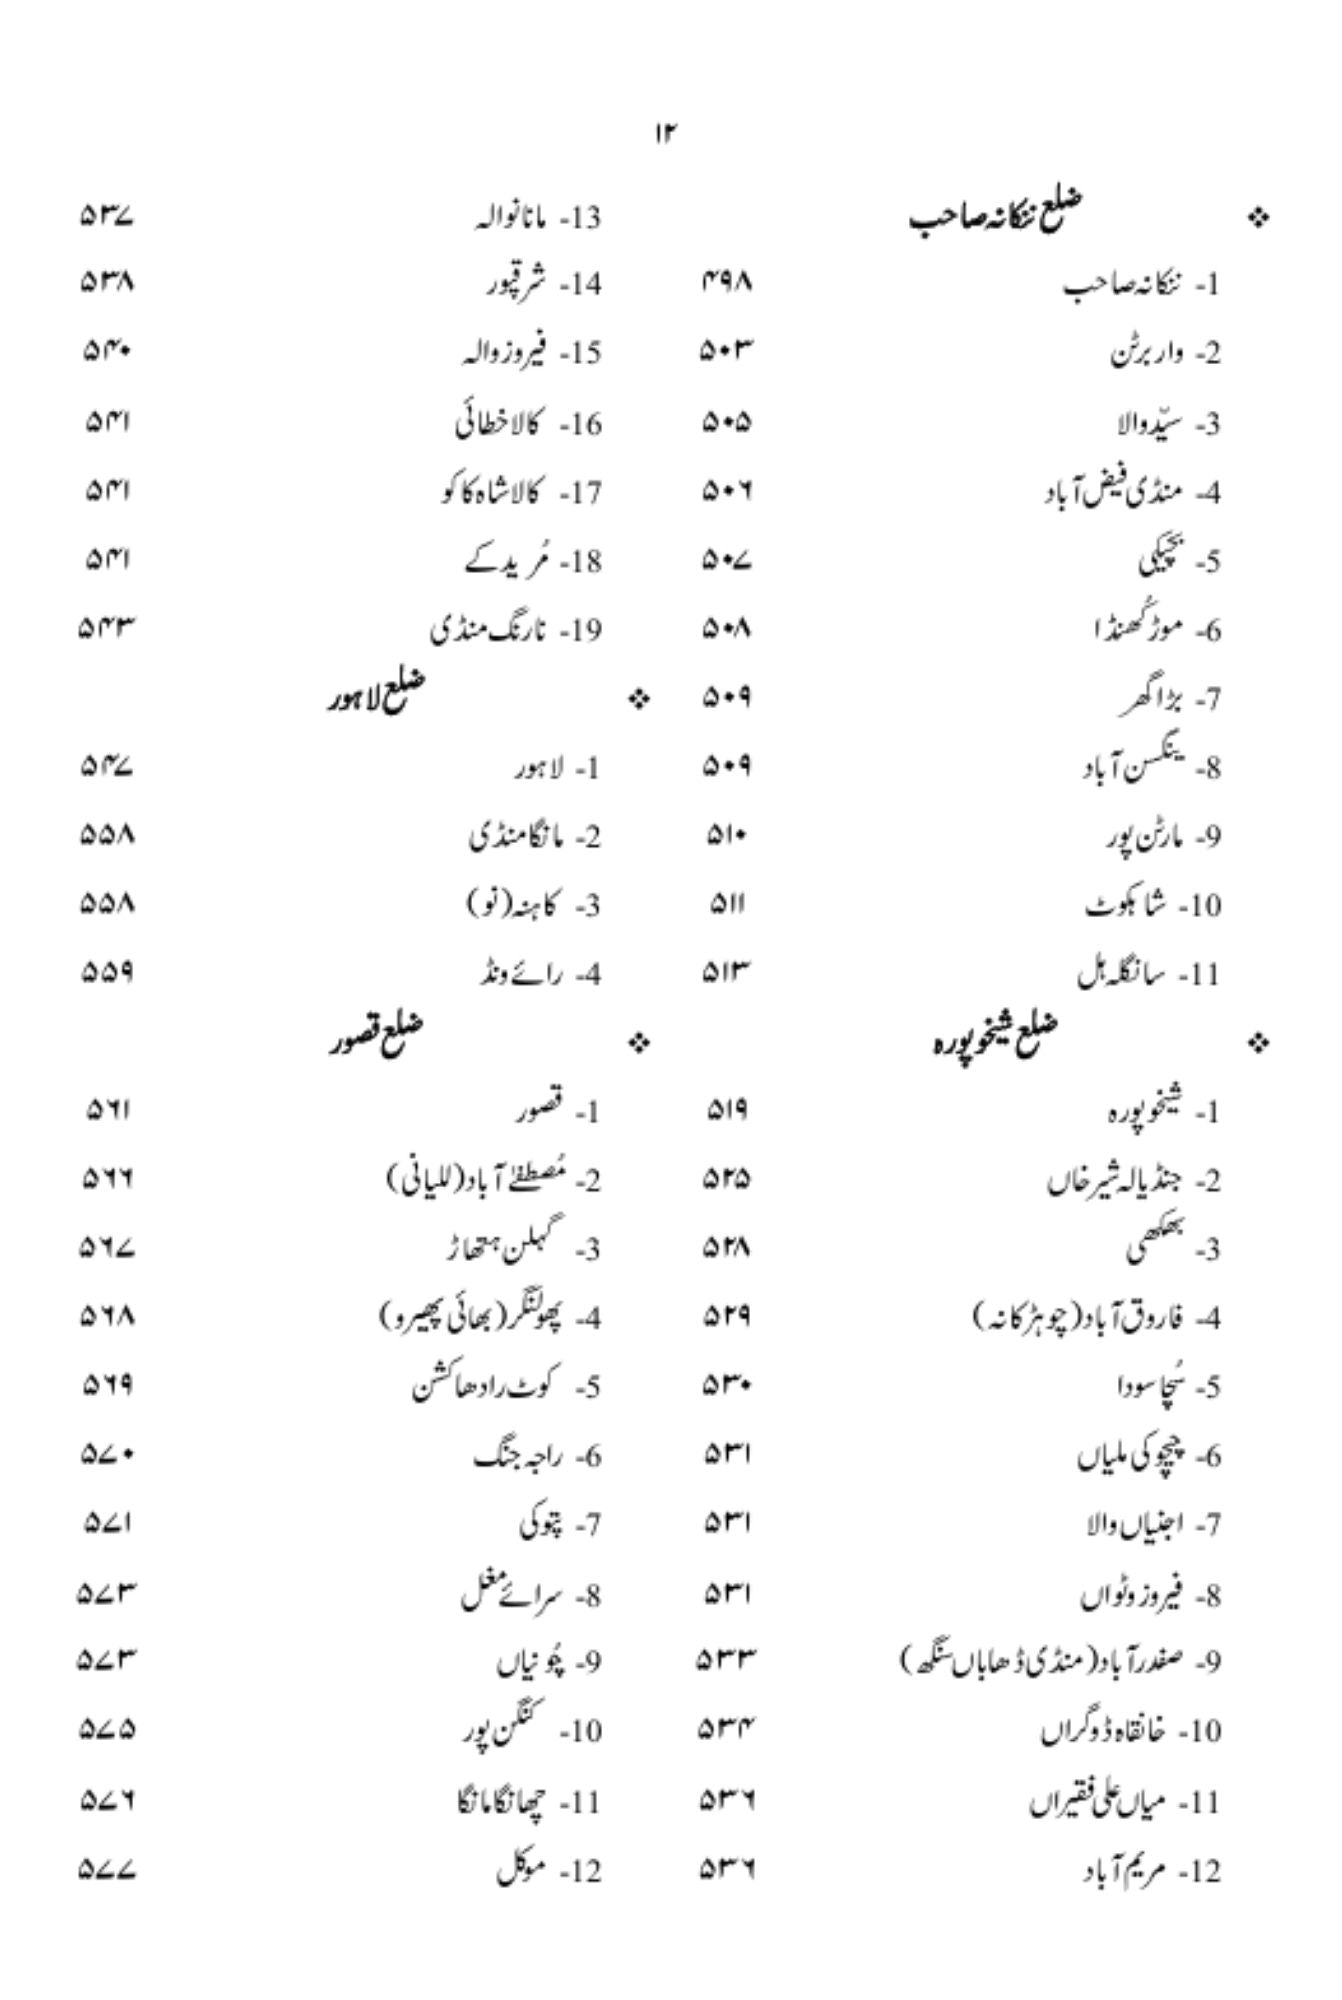 ۱۲
❖ ضلع ننکانہ صاحب
1- ننکانہ صاحب ۴۹۸
2- وار برٹن ۵۰۳
3- سیّد والا ۵۰۵
4- منڈی فیض آباد ۵۰۶
5- بچیکی ۵۰۷
6- موڑ کُھنڈا ۵۰۸
7- بڑا گھر ۵۰۹
8- ینگسن آباد ۵۰۹
9- مارٹن پور ۵۱۰
10- شاہکوٹ ۵۱۱
11- سانگلہ ہل ۵۱۳
❖ ضلع شیخوپورہ
1- شیخوپورہ ۵۱۹
2- جنڈیالہ شیر خاں ۵۲۵
3- بھکھی ۵۲۸
4- فاروق آباد (چوہڑکانہ) ۵۲۹
5- سُچا سودا ۵۳۰
6- چیچو کی ملیاں ۵۳۱
7- اجنیاں والا ۵۳۱
8- فیروز وٹواں ۵۳۱
9- صفدر آباد (منڈی ڈھاباں سنگھ) ۵۳۳
10- خانقاہ ڈوگراں ۵۳۴
11- میاں علی فقیراں ۵۳۶
12- مریم آباد ۵۳۶
13- مانانوالہ ۵۳۷
14- شرقپور ۵۳۸
15- فیروز والہ ۵۴۰
16- کالا خطائی ۵۴۱
17- کالا شاہ کاکو ۵۴۱
18- مُرید کے ۵۴۱
19- نارنگ منڈی ۵۴۳
❖ ضلع لاہور
1- لاہور ۵۴۷
2- مانگا منڈی ۵۵۸
3- کاہنہ (نو) ۵۵۸
4- رائے ونڈ ۵۵۹
❖ ضلع قصور
1- قصور ۵۶۱
2- مُصطفٰے آباد (للیانی) ۵۶۶
3- گہلن ہتھاڑ ۵۶۷
4- پھولنگر (بھائی پھیرو) ۵۶۸
5- کوٹ رادھا کشن ۵۶۹
6- راجہ جنگ ۵۷۰
7- پتوکی ۵۷۱
8- سرائے مغل ۵۷۳
9- چُونیاں ۵۷۳
10- کنگن پور ۵۷۵
11- چھانگا مانگا ۵۷۶
12- موکل ۵۷۷